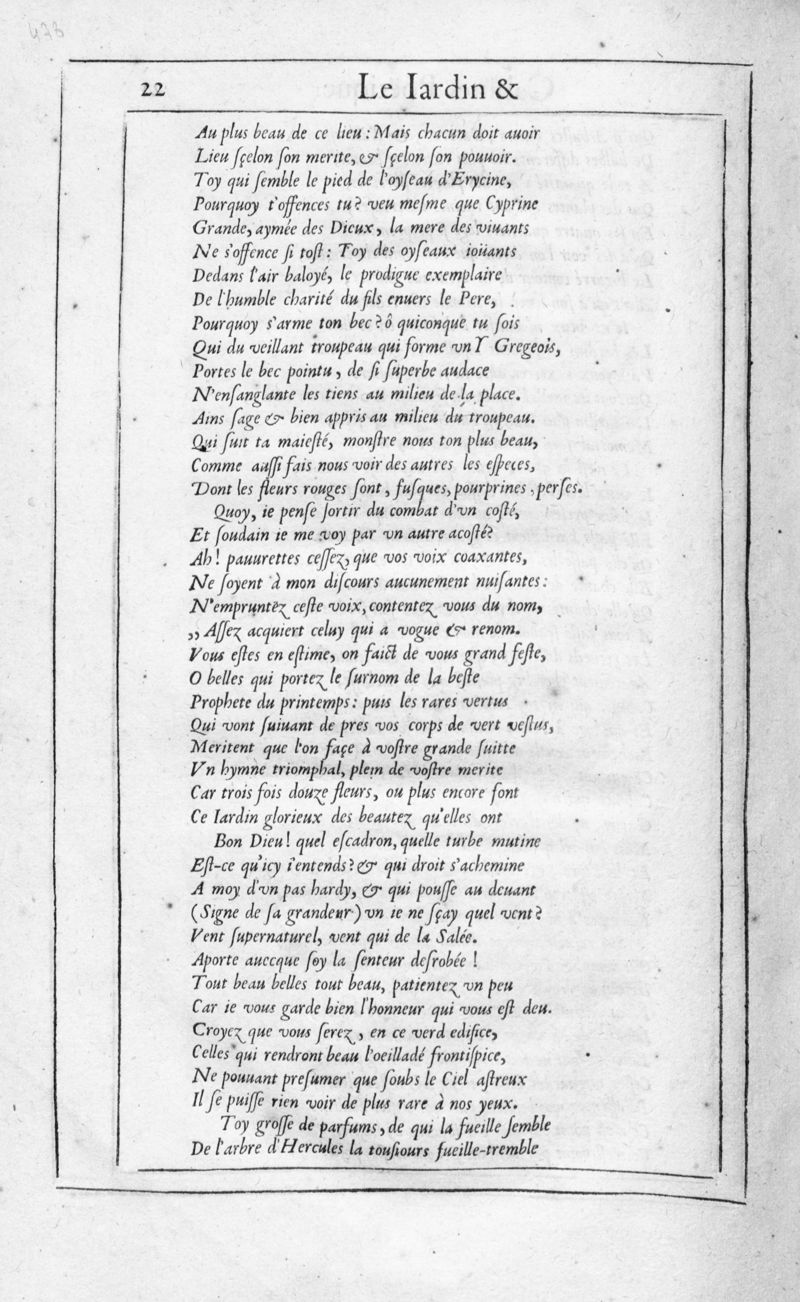 423
22 Le Iardin &
Au plus beau de ce lieu : Mais chacun doit auoir
Lieu sçelon son merite, & sçelon son pouuoir.
Toy qui semble le pied de l'oyseau d'Erycine,
Pourquoy t'offences tu? veu mesme que Cyprine
Grande, aymée des Dieux, la mere des viuants
Ne s'offence si tost : Toy des oyseaux ioüants
Dedans l'air baloyé, le prodigue exemplaire
De l'humble charité du fils enuers le Pere,
Pourquoy s'arme ton bec? ô quiconque tu sois
Qui du veillant troupeau qui forme vn Υ Gregeois,
Portes le bec pointu, de si superbe audace
N'ensanglante les tiens au milieu de la place.
Ains sage & bien appris au milieu du troupeau.
Qui suit ta maiesté, monstre nous ton plus beau,
Comme aussi fais nous voir des autres les especes,
Dont les fleurs rouges sont, fusques, pourprines, perses.
Quoy, ie pense sortir du combat d'vn costé,
Et soudain ie me voy par vn autre acosté?
Ah! pauurettes cessez, que vos voix coaxantes,
Ne soyent à mon discours aucunement nuisantes :
N'empruntez ceste voix, contentez vous du nom,
,, Assez acquiert celuy qui a vogue & renom.
Vous estes en estime, on faict de vous grand feste,
O belles qui portez le surnom de la beste
Prophete du printemps : puis les rares vertus
Qui vont suiuant de pres vos corps de vert vestus,
Meritent que l'on façe à vostre grande suitte
Vn hymne triomphal, plein de vostre merite
Car trois fois douze fleurs, ou plus encore font
Ce Iardin glorieux des beautez qu'elles ont
Bon Dieu! quel escadron, quelle turbe mutine
Est-ce qu'icy i'entends? & qui droit s'achemine
A moy d'vn pas hardy, & qui pousse au deuant
(Signe de sa grandeur) vn ie ne sçay quel vent?
Vent supernaturel, vent qui de la Salée.
Aporte auecque soy la senteur desrobée !
Tout beau belles tout beau, patientez vn peu
Car ie vous garde bien l'honneur qui vous est deu.
Croyez que vous serez, en ce verd edifice,
Celles qui rendront beau l'oeilladé frontispice,
Ne pouuant presumer que soubs le Ciel astreux
Il se puisse rien voir de plus rare à nos yeux.
Toy grosse de parfums, de qui la fueille semble
De l'arbre d'Hercules la tousiours fueille-tremble